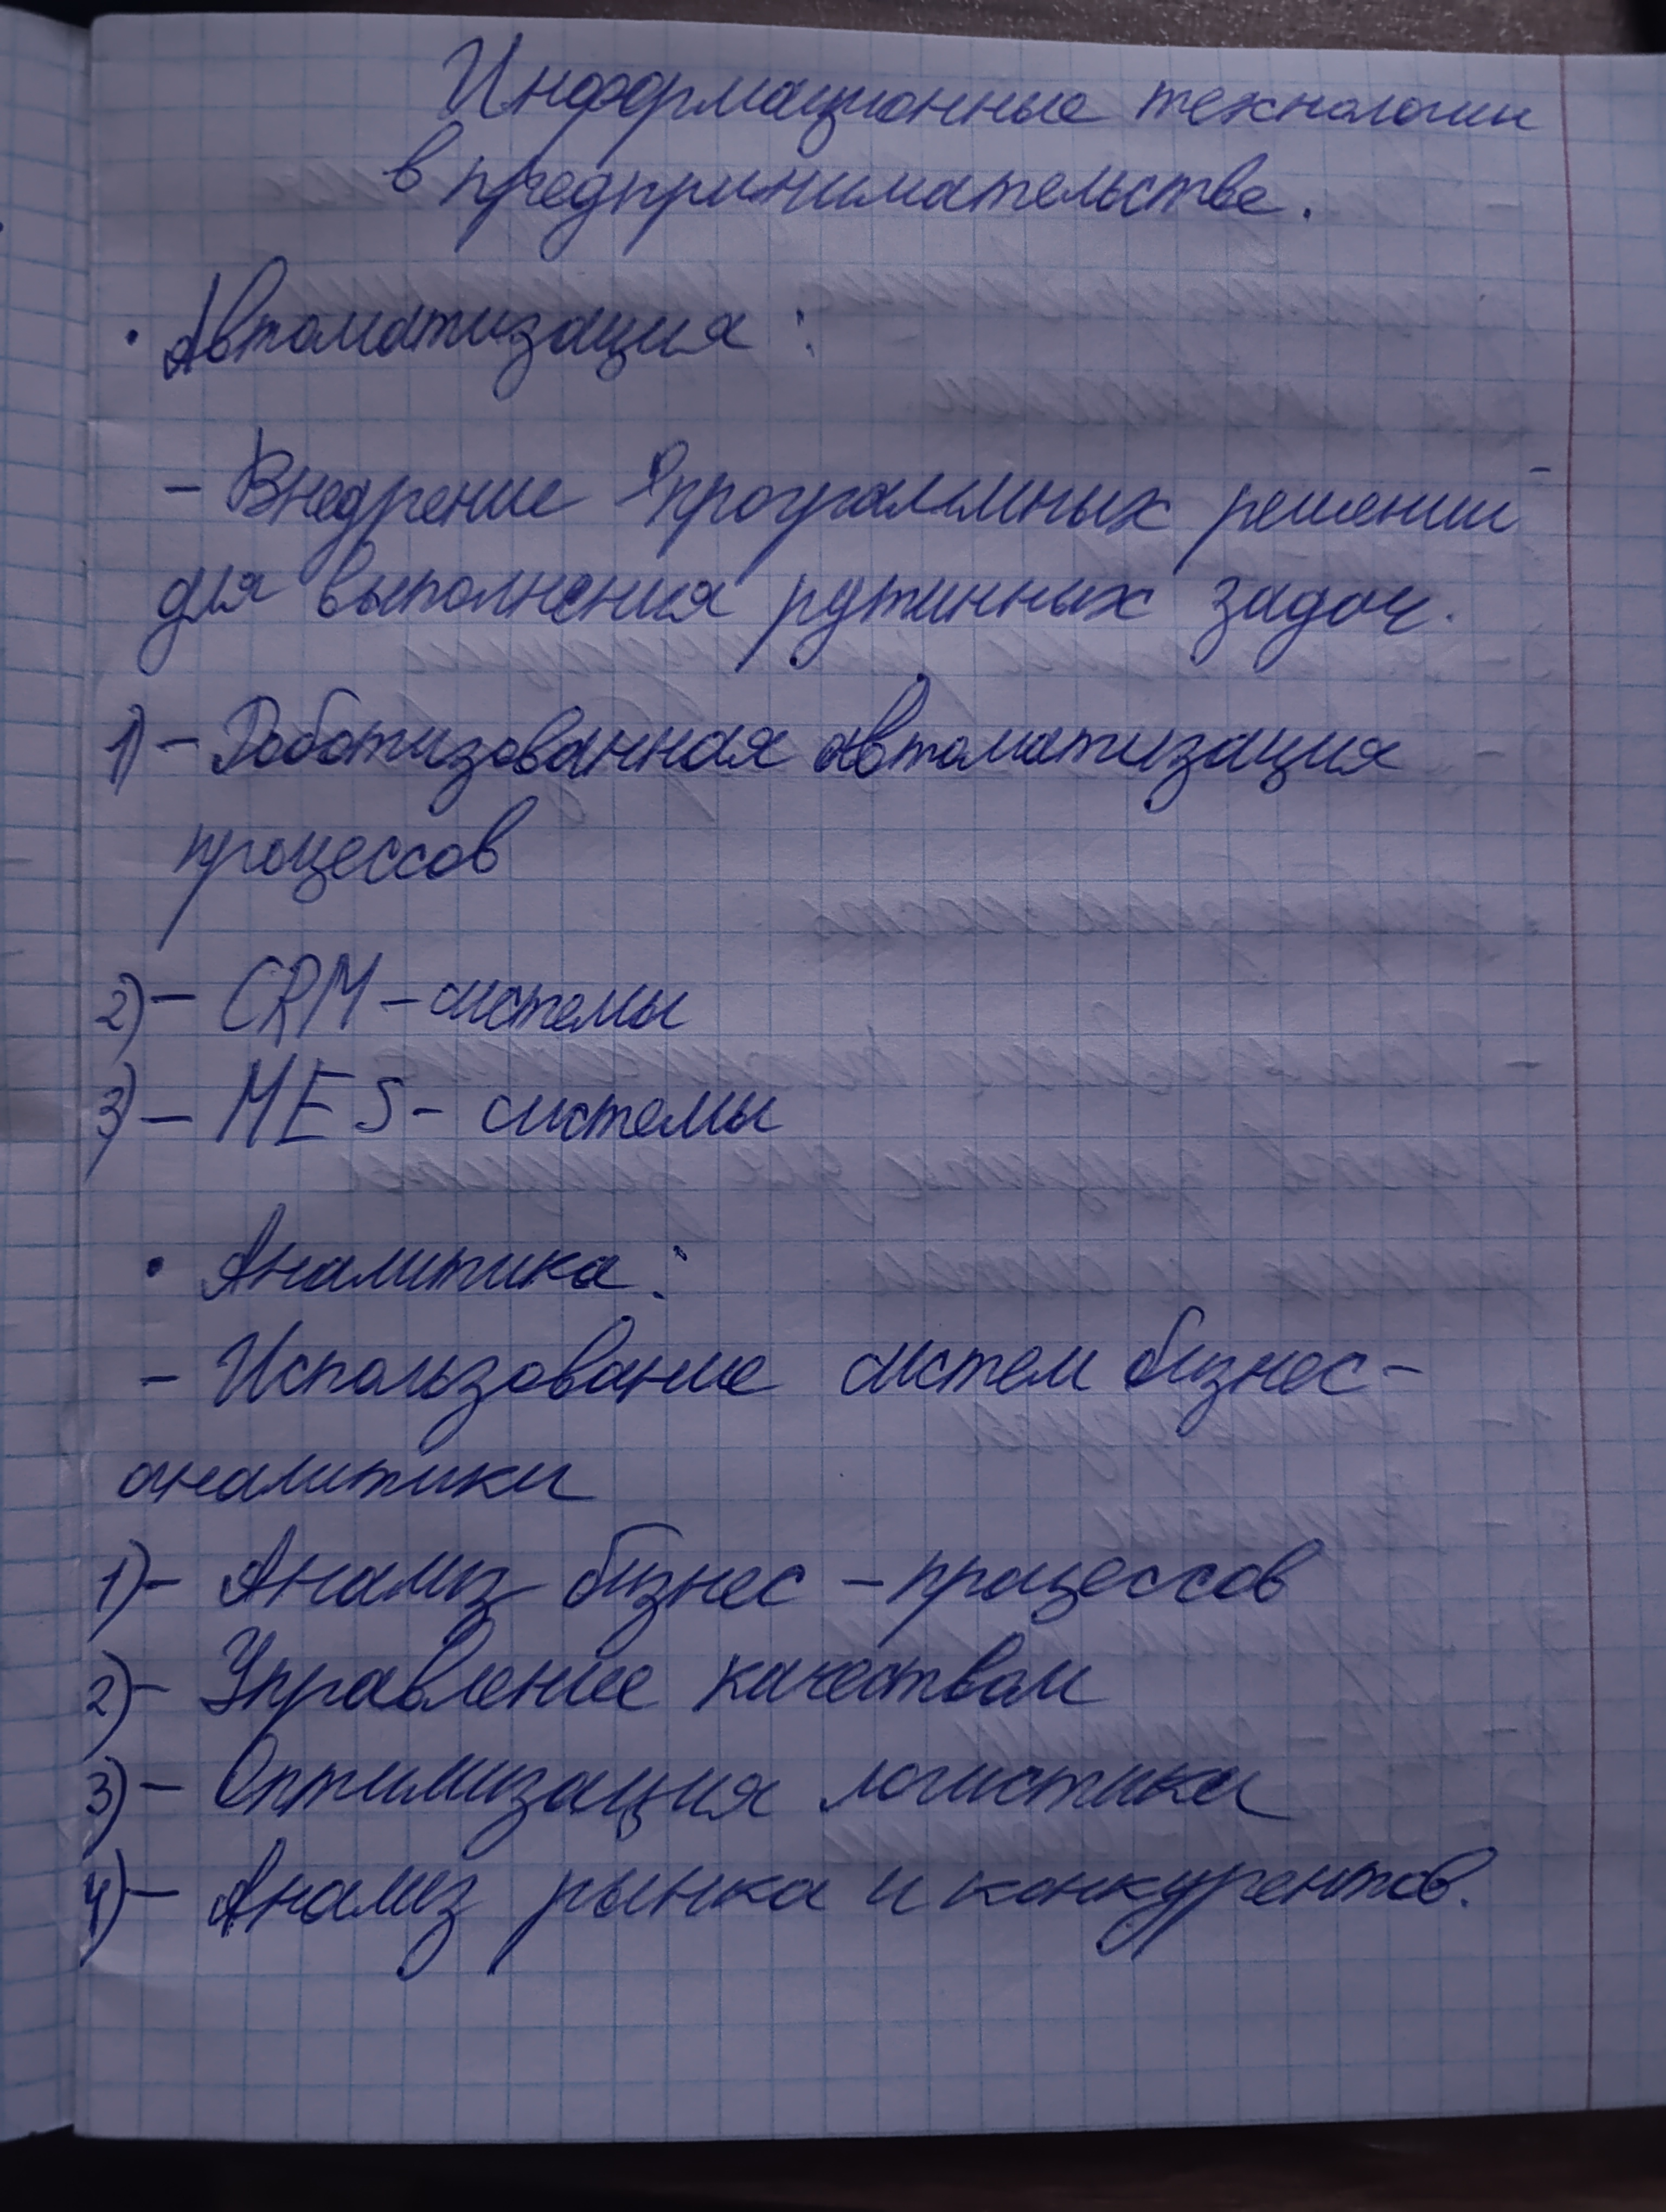 Информационные технологии
в предпринимательстве.
• Автоматизация :
- Внедрение программных решений
для выполнения рутинных задач.
1) - Роботизованная автоматизация
процессов
2) - CRM - системы
3) - MES - системы
• Аналитика :
- Использование систем бизнес-
аналитики
1) - Анализ бизнес - процессов
2) - Управление качеством
3) - Оптимизация логистики
4) - Анализ рынка и конкурентов.